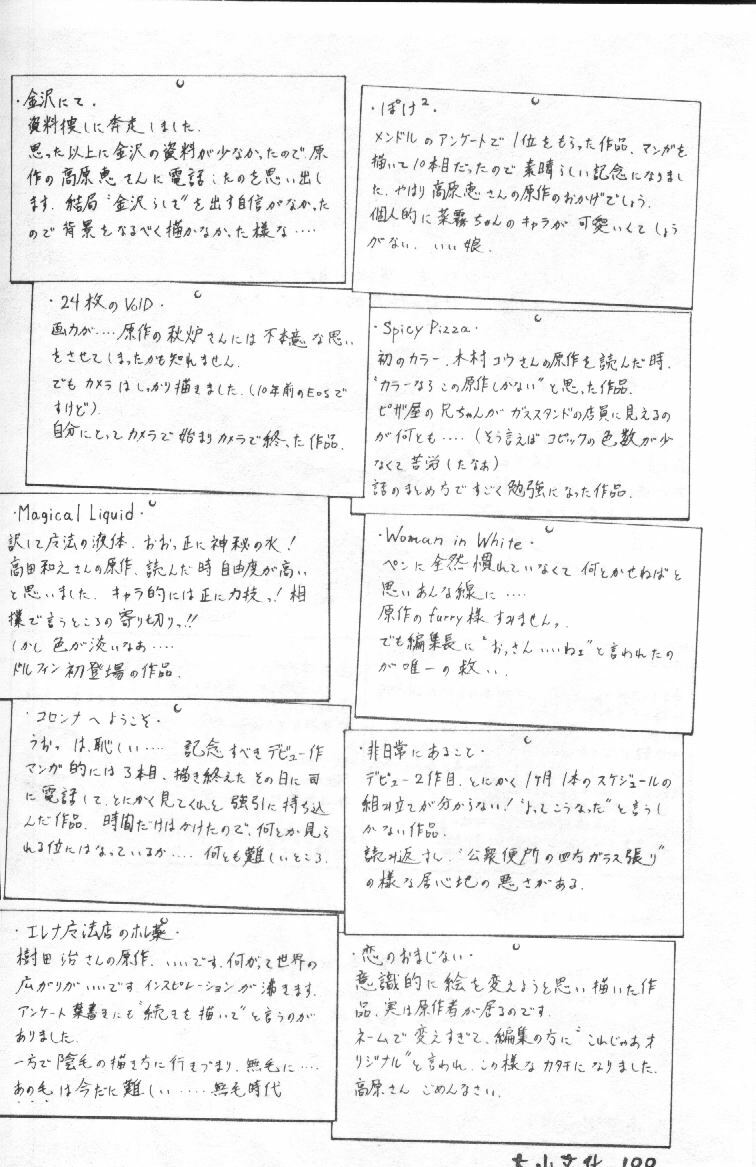 ・金沢にて・
資料捜しに奔走しました.
思った以上に金沢の資料が少なかったので、原
作の高原恵さんに電話したのを思い出し
ます. 結局“金沢らしさ”を出す自信がなかった
ので背景をなるべく描かなかった様な….
・ぽけ²・
メンドルのアンケートで1位をもらった作品、マンガを
描いて10本目だったので素晴らしい記念になりまし
た. やはり高原恵さんの原作のおかげでしょう.
個人的に菜霧ちゃんのキャラが可愛いくてしょう
がない. いい娘.
・24枚のVOID・
画力が….原作の秋炉さんには不本意な思い
をさせてしまったかも知れません.
でもカメラはしっかり描きました.(10年前のEOSで
すけど).
自分にとってカメラで始まりカメラで終った作品.
・Spicy Pizza・
初のカラー. 木村コウさんの原作を読んだ時.
“カラーならこの原作しかない”と思った作品.
ピザ屋の兄ちゃんがガススタンドの店員に見えるの
が何とも….(そう言えばコピックの色数が少
なくて苦労したなぁ)
話のまとめ方ですごく勉強になった作品.
・Magical Liquid・
訳して魔法の液体. おおっ正に神秘の水!
高田和えさんの原作. 読んだ時自由度が高い
と思いました. キャラ的には正に力技っ! 相
撲で言うところの寄り切りっ!!
しかし色が淡いなぁ….
ドルフィン初登場の作品.
・Woman in White・
ペンに全然慣れていなくて何とかせねばと
思いあんな線に….
原作のfurry様すみませんっ.
でも編集長に“おっさんいいねェ”と言われたの
が唯一の救い.
・コロンナへようこそ・
うおっ は、恥しい…. 記念すべきデビュー作
マンガ的には3本目、描き終えたその日に司
に電話して、とにかく見てくれと強引に持ち込
んだ作品. 時間だけはかけたので、何とか見ら
れる位にはなっているか…. 何とも難しいところ.
・非日常にあること・
デビュー2作目. とにかく1ヶ月1本のスケジュールの
組み立てが分からない!“よってこうなった”と言うし
かない作品.
読み返すと、“公衆便所の四方ガラス張り”
の様な居心地の悪さがある.
・エレナ魔法店のホレ薬・
樹田治さんの原作. いいです. 何がって世界の
広がりがいいです インスピレーションが沸きます.
アンケート葉書きにも“続きを描いて”と言うのが
ありました.
一方で陰毛の描き方に行きづまり、無毛に….
あの毛は今だに難しい….. 無毛時代
・恋のおまじない・
意識的に絵を変えようと思い描いた作
品. 実は原作者が居るのです.
ネームで変えすぎて、編集の方に“これじゃあオ
リジナル”と言われ、この様なカタチになりました.
高原さん ごめんなさい.